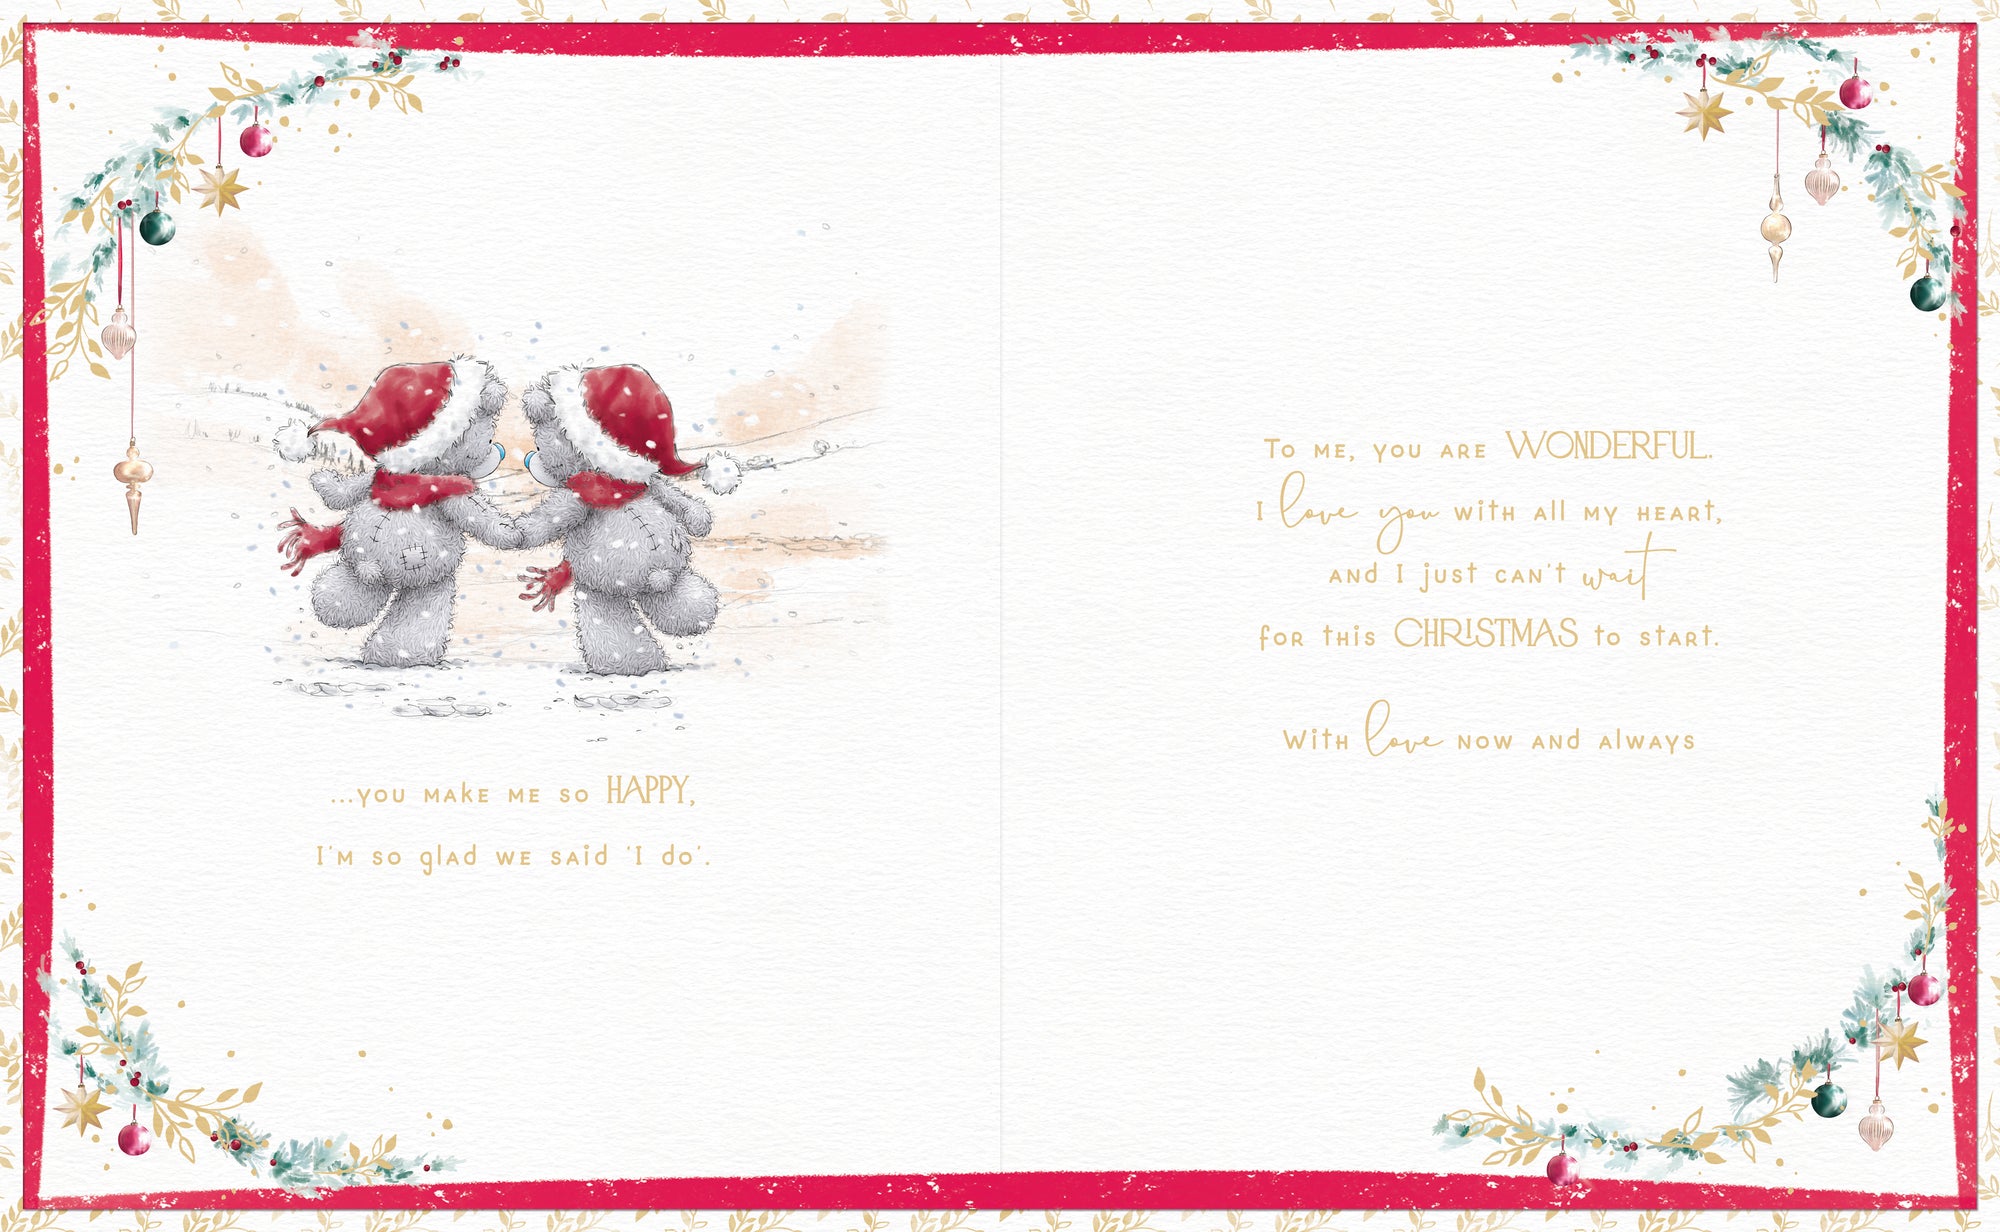 ...you make me so HAPPY,
I'm so glad we said 'I do'.
To me, you are WONDERFUL.
I love you with all my heart,
and I just can't wait
for this CHRISTMAS to start.
With love now and always